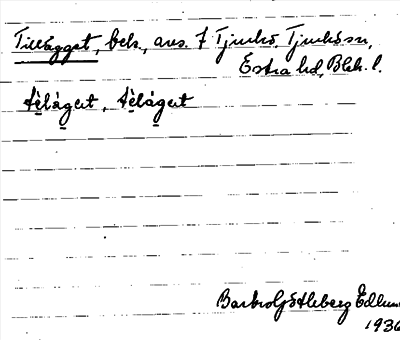 Tilläggat, beb., avs. f Tjurkö, Tjurkö sn,
Östra hd, Blek. l.
tèlàgat, tèlágat
Barbro Götleberg Edlund
1936